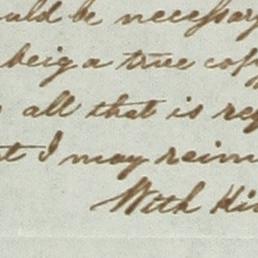 uld be necessary
beig a true cop
all that is re
t I may reim
With Ki